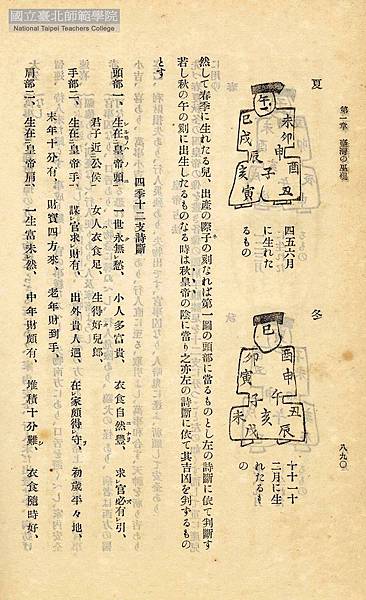 國立臺北師範學院
National Taipei Teachers College
第一章 臺灣の巫覡
八九〇
夏
午
未
卯
申
酉
丑
子
辰
巳
戌
亥
寅
四五六月
に生れた
るもの
冬
巳
酉
申
丑
午
辰
亥
子
卯
寅
戌
未
十十一十
二月に生
れたるも
の
然して春季に生れたる兒、出產の際子の刻なれば第一圖の頭部に當るものとし左の詩斷に依て判斷す
若し秋の午の刻に出生したるものなる時は秋皇帝の陰に當り之亦左の詩斷に依て其吉凶を判するもの
とす
四季十二支詩斷
頭部一、生在皇帝頭 一世永無愁、 小人多富貴、 衣食自然豐、 求官必有引、
君子近公侯 女人衣食足、 生得好兒郎、
手部二、生在皇帝手、 謀官求財有、 出外貴人遇、 在家頗得守、 初歲平々地、
末年十分有、 財寶四方來、 老年財到手、
肩部二、生在皇帝肩、 一生富未然、 中年財頗有、 堆積十分難、 衣食隨時好、